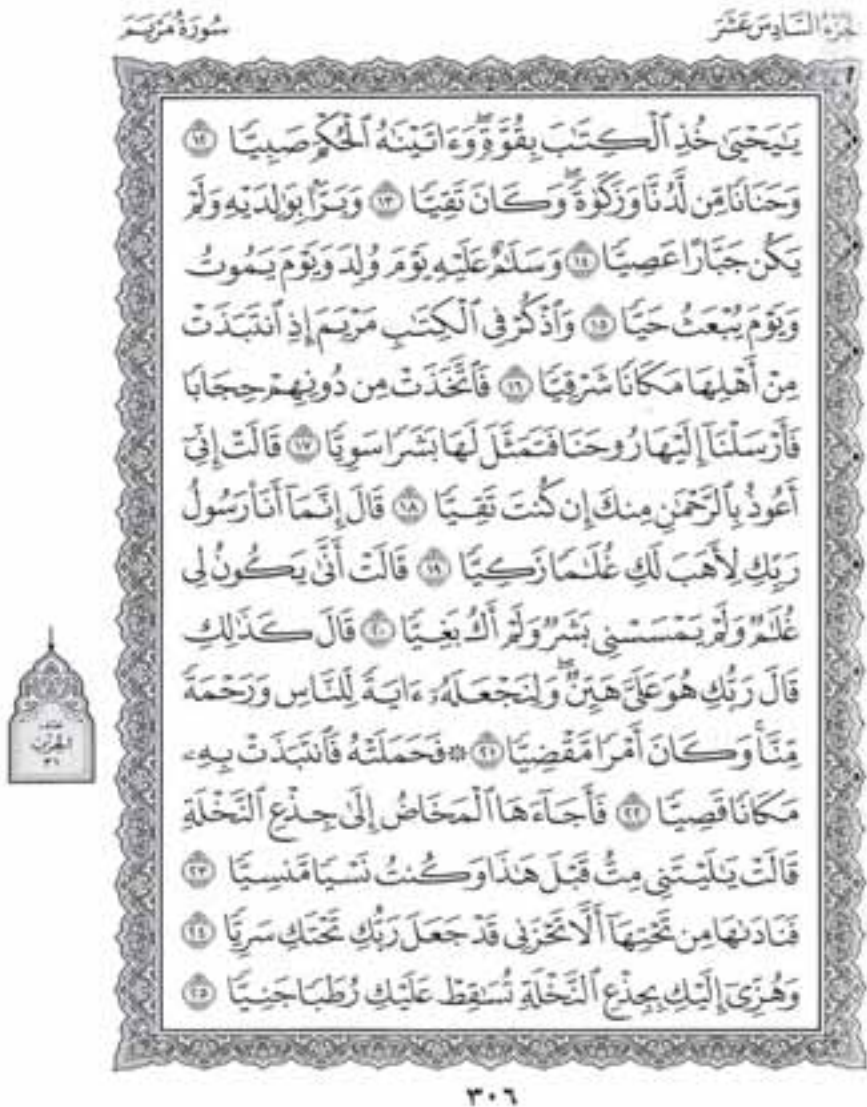 الجزء السادس عشر
سورة مريم
يَـٰيَحْيَىٰ خُذِ ٱلْكِتَـٰبَ بِقُوَّةٍۖ وَءَاتَيْنَـٰهُ ٱلْحُكْمَ صَبِيًّا ١٢
وَحَنَانًا مِّن لَّدُنَّا وَزَكَوٰةًۖ وَكَانَ تَقِيًّا ١٣ وَبَرًّۢا بِوَٰلِدَيْهِ وَلَمْ
يَكُن جَبَّارًا عَصِيًّا ١٤ وَسَلَـٰمٌ عَلَيْهِ يَوْمَ وُلِدَ وَيَوْمَ يَمُوتُ
وَيَوْمَ يُبْعَثُ حَيًّا ١٥ وَٱذْكُرْ فِى ٱلْكِتَـٰبِ مَرْيَمَ إِذِ ٱنتَبَذَتْ
مِنْ أَهْلِهَا مَكَانًا شَرْقِيًّا ١٦ فَٱتَّخَذَتْ مِن دُونِهِمْ حِجَابًا
فَأَرْسَلْنَآ إِلَيْهَا رُوحَنَا فَتَمَثَّلَ لَهَا بَشَرًا سَوِيًّا ١٧ قَالَتْ إِنِّىٓ
أَعُوذُ بِٱلرَّحْمَـٰنِ مِنكَ إِن كُنتَ تَقِيًّا ١٨ قَالَ إِنَّمَآ أَنَا۠ رَسُولُ
رَبِّكِ لِأَهَبَ لَكِ غُلَـٰمًا زَكِيًّا ١٩ قَالَتْ أَنَّىٰ يَكُونُ لِى
غُلَـٰمٌ وَلَمْ يَمْسَسْنِى بَشَرٌ وَلَمْ أَكُ بَغِيًّا ٢٠ قَالَ كَذَٰلِكِ
قَالَ رَبُّكِ هُوَ عَلَىَّ هَيِّنٌۖ وَلِنَجْعَلَهُۥٓ ءَايَةً لِّلنَّاسِ وَرَحْمَةً
مِّنَّاۚ وَكَانَ أَمْرًا مَّقْضِيًّا ٢١ ۞ فَحَمَلَتْهُ فَٱنتَبَذَتْ بِهِۦ
مَكَانًا قَصِيًّا ٢٢ فَأَجَآءَهَا ٱلْمَخَاضُ إِلَىٰ جِذْعِ ٱلنَّخْلَةِ
قَالَتْ يَـٰلَيْتَنِى مِتُّ قَبْلَ هَـٰذَا وَكُنتُ نَسْيًا مَّنسِيًّا ٢٣
فَنَادَىٰهَا مِن تَحْتِهَآ أَلَّا تَحْزَنِى قَدْ جَعَلَ رَبُّكِ تَحْتَكِ سَرِيًّا ٢٤
وَهُزِّىٓ إِلَيْكِ بِجِذْعِ ٱلنَّخْلَةِ تُسَـٰقِطْ عَلَيْكِ رُطَبًا جَنِيًّا ٢٥
الحزب
٣١
٣٠٦